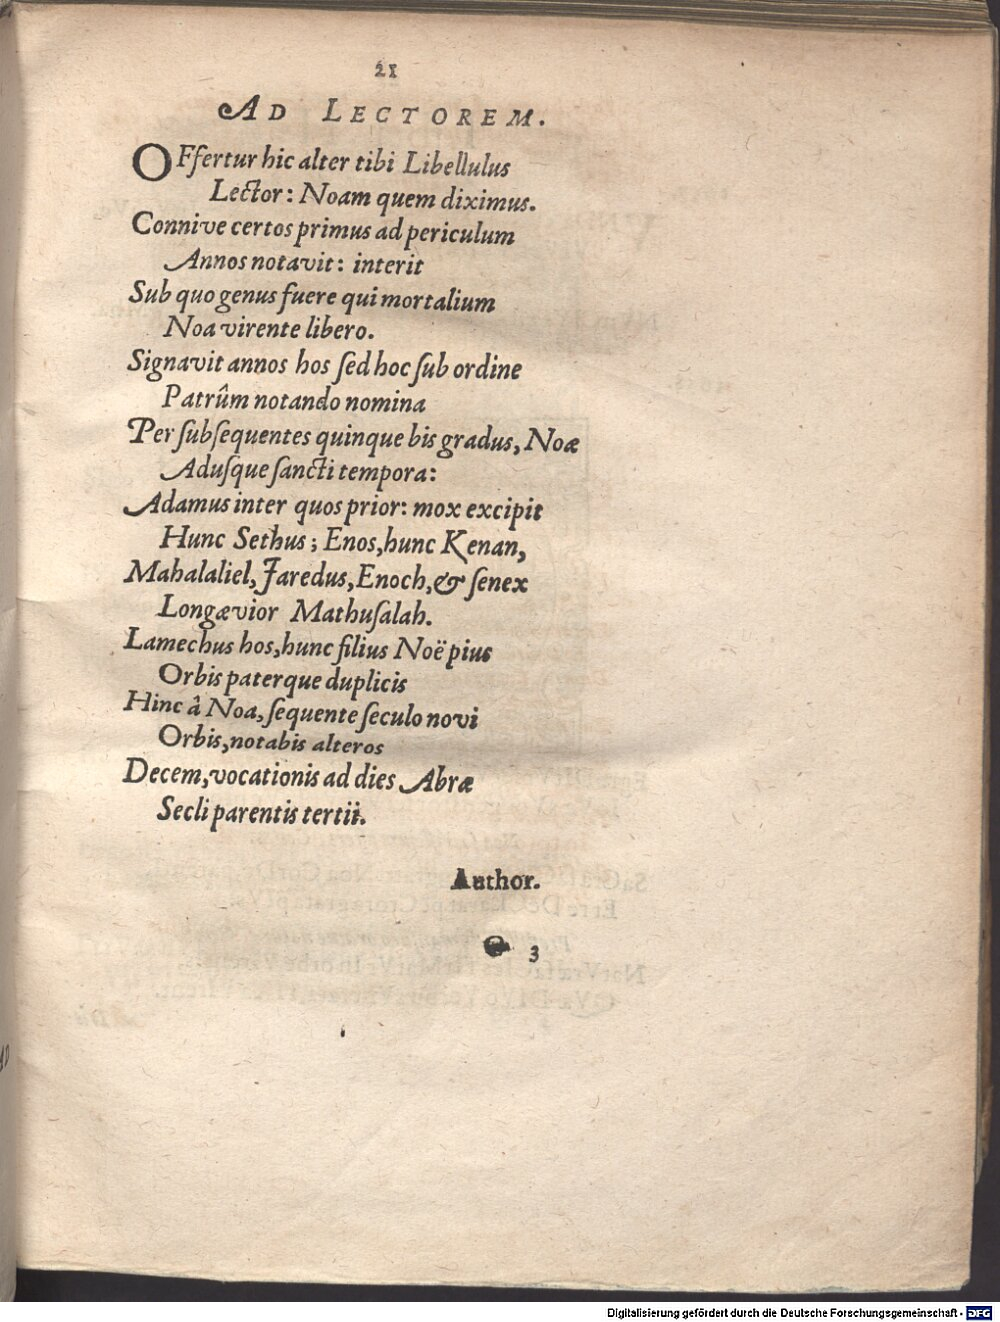 21
AD LECTOREM.
OFfertur hic alter tibi Libellulus
Lector: Noam quem diximus.
Connive certos primus ad periculum
Annos notavit: interit
Sub quo genus fuere qui mortalium
Noa virente libero.
Signavit annos hos ſed hoc ſub ordine
Patrûm notando nomina
Per ſubſequentes quinque bis gradus, Noæ
Aduſque ſancti tempora:
Adamus inter quos prior: mox excipit
Hunc Sethus; Enos, hunc Kenan,
Mahalaliel, Jaredus, Enoch, & ſenex
Longævior Mathuſalah.
Lamechus hos, hunc filius Noë pius
Orbis paterque duplicis
Hinc â Noa, ſequente ſeculo novi
Orbis, notabis alteros
Decem, vocationis ad dies Abræ
Secli parentis tertii.
Author.
3
Digitalisierung gefördert durch die Deutsche Forschungsgemeinschaft - DFG